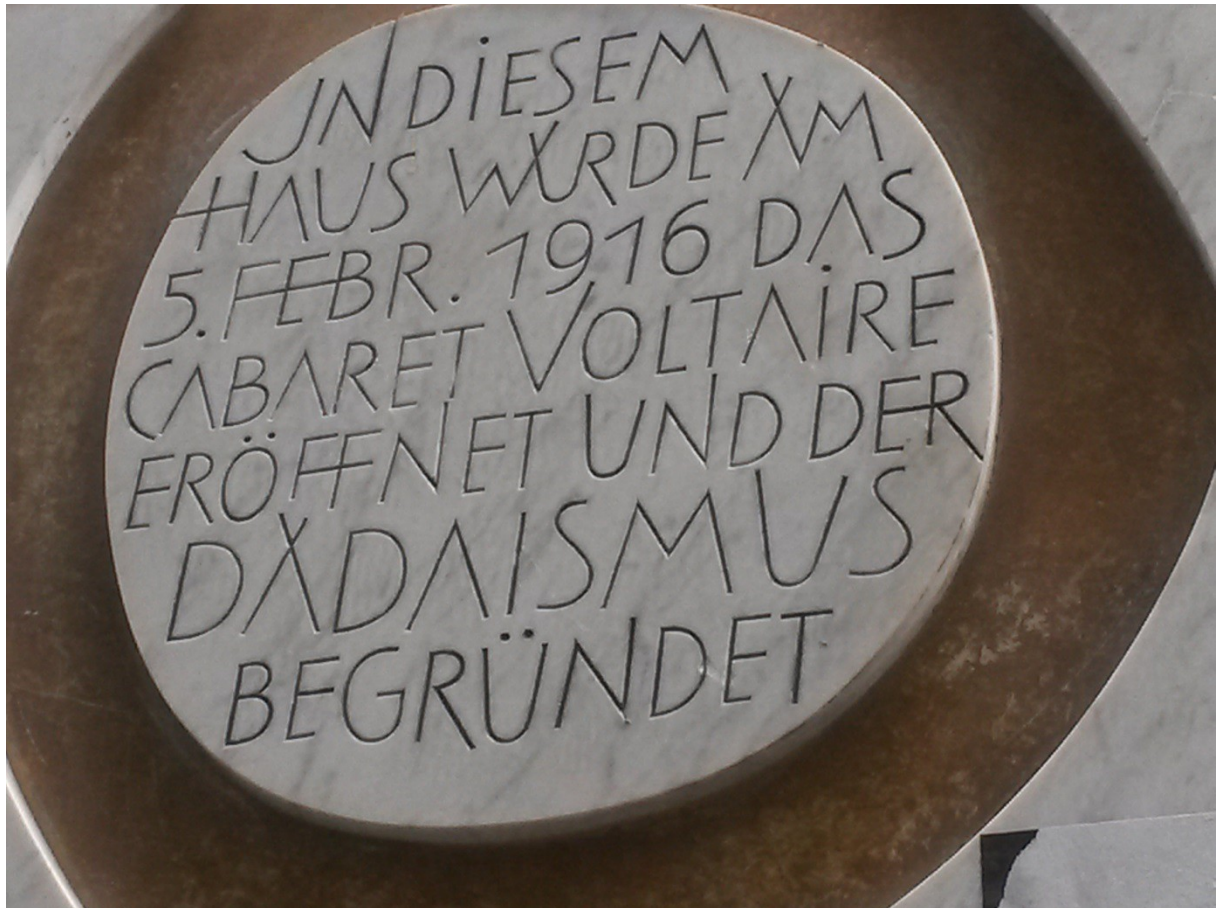 JN DiESEM
HAUS WURDE AM
5. FEBR. 1916 DAS
CABARET VOLTAiRE
ERÖFFNET UND DER
DADAISMUS
BEGRÜNDET